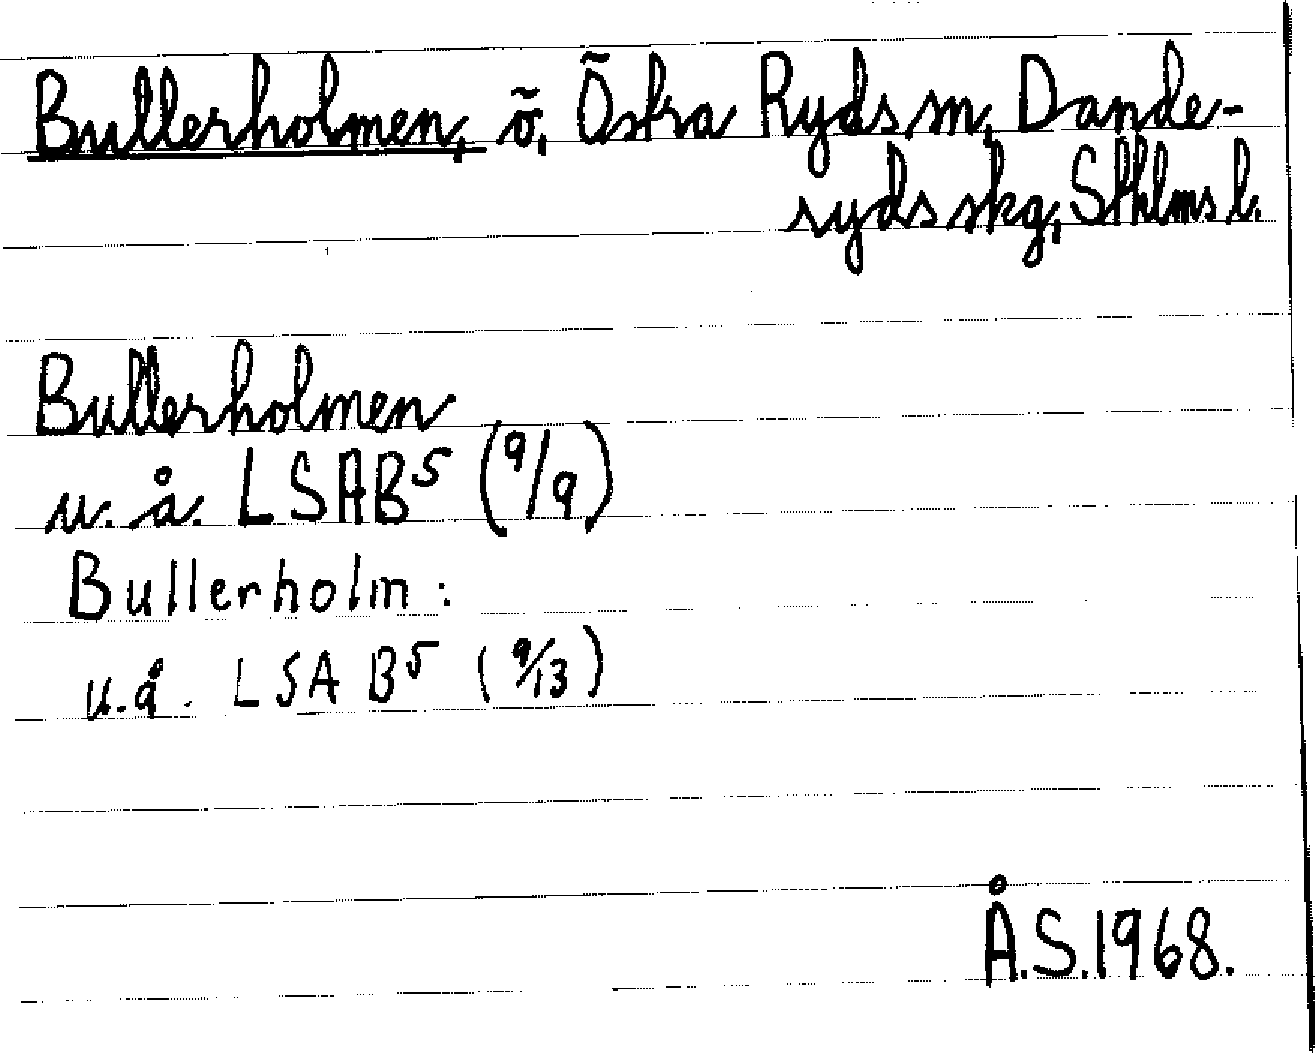 Bullerholmen, ö, Östra Ryds sn, Dande-
ryds skg, Sthlms l.
Bullerholmen
u. å. LSAB⁵ (9/9)
Bullerholm:
u.å. LSA B⁵ (9/13)
Å.S.1968.